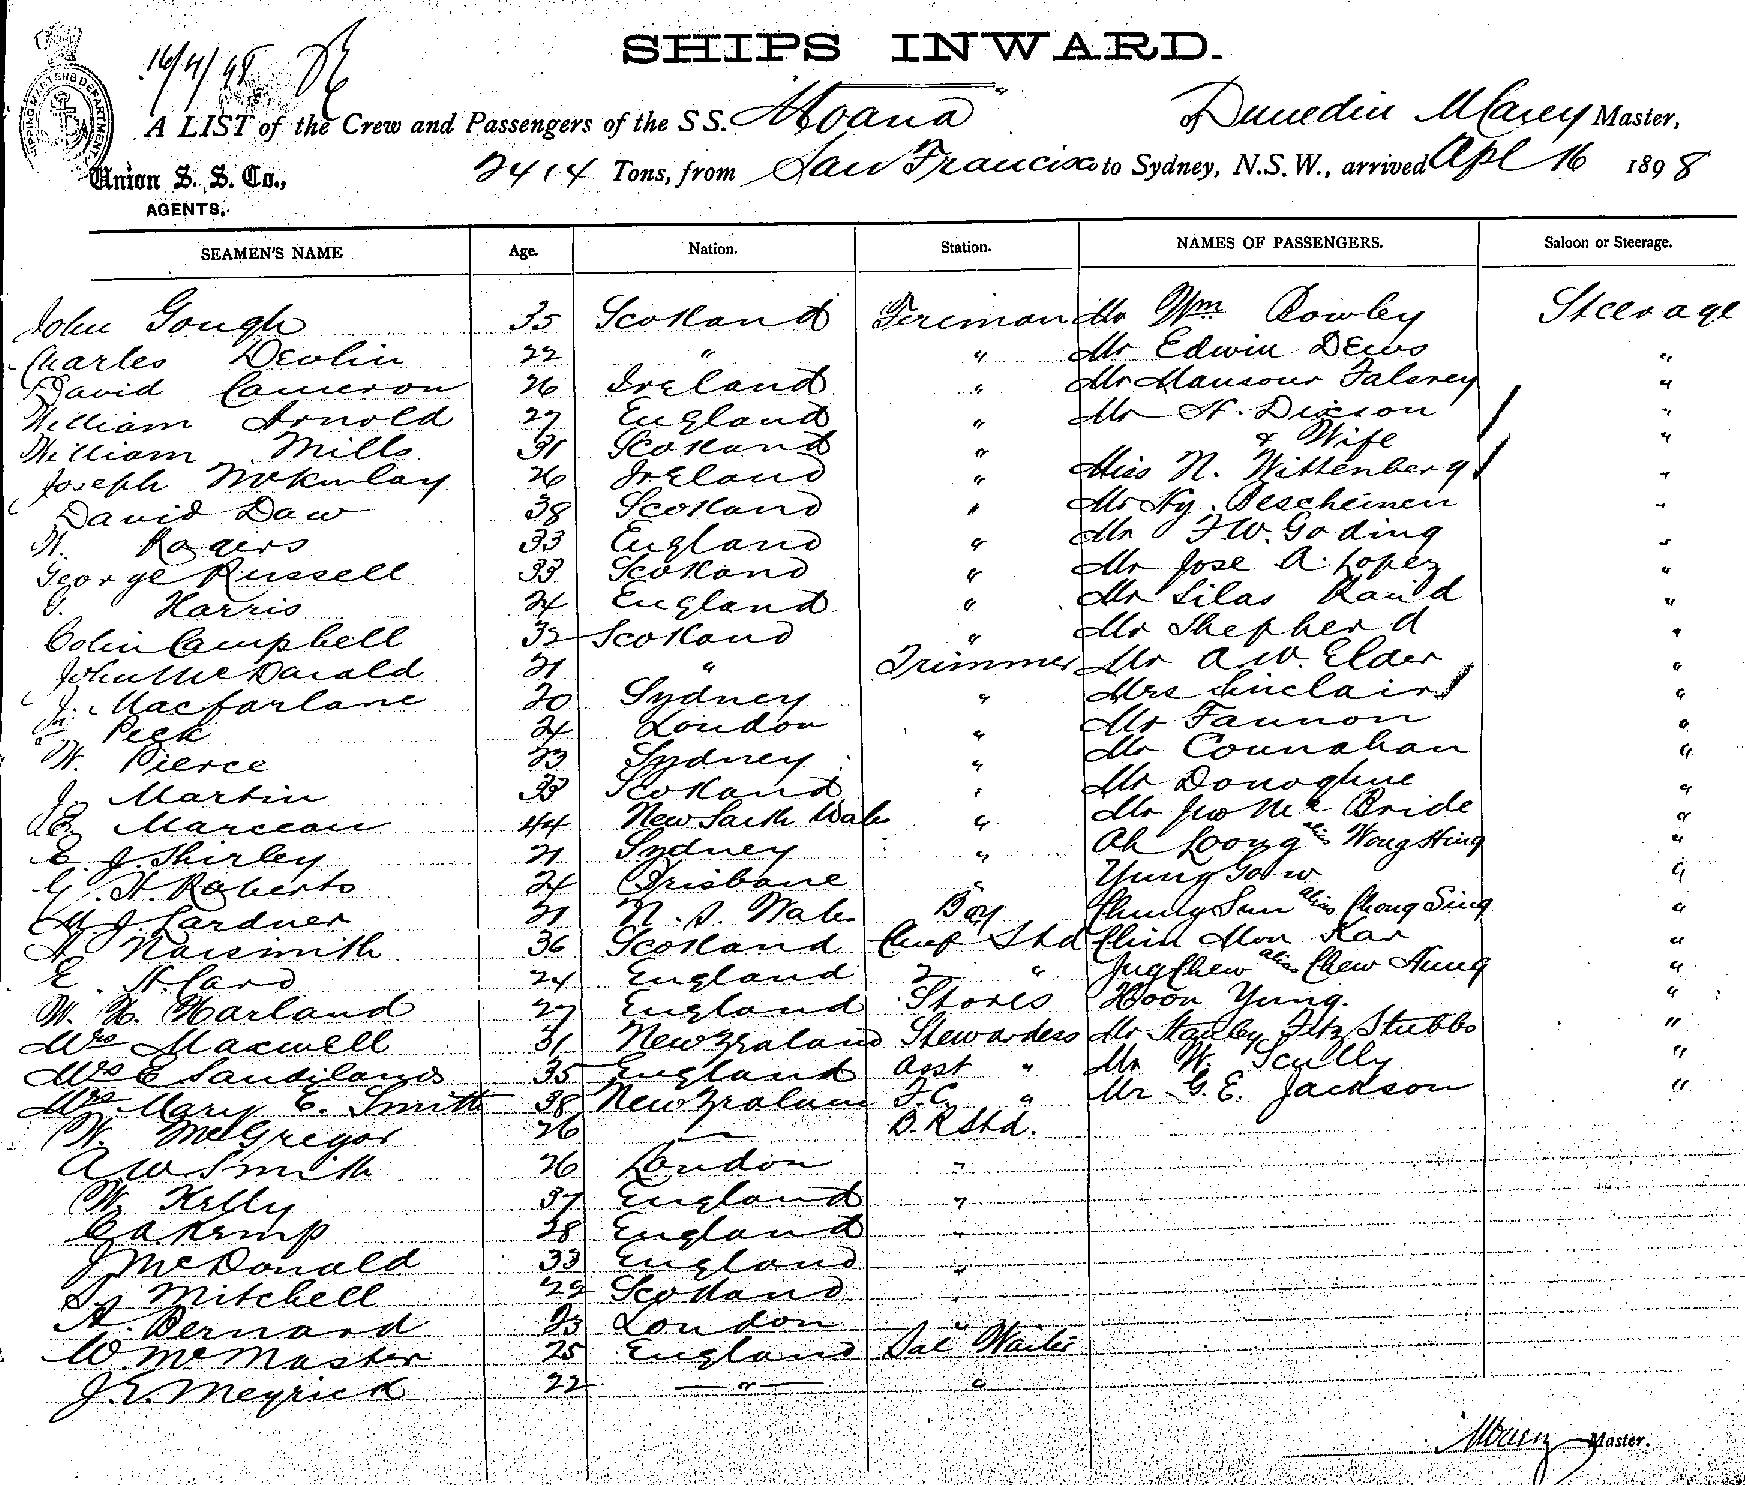 SHIPS INWARD.
16/4/98
A LIST of the Crew and Passengers of the S S. "Moana" of Dunedin M Carey Master,
Union S. S. Co., 2414 Tons, from San Francisco to Sydney, N.S.W., arrived Apl 16 1898
AGENTS.
SEAMEN'S NAME Age. Nation. Station. NAMES OF PASSENGERS. Saloon or Steerage.
John Gough 35 Scotland Fireman Mr Wm Rowley Steerage
Charles Devlin 22 " " Mr Edwin Dews "
David Cameron 26 Ireland " Mr Mansour "
William Arnold 27 England " Mr H. Dixson "
William Mills 31 Scotland " & Wife "
Joseph McKinlay 26 Ireland " Miss N. Wittenberg "
David Daw 38 Scotland " Mr Hy. Bescheinen "
H. Rogers 33 England " Mr F W. Goding "
George Russell 33 Scotland " Mr Jose A. Lopez "
Harris 24 England " Mr Silas "
Colin Campbell 32 Scotland " Mr Shepherd "
John McDonald 21 " Trimmer Mr A. W. Elder "
J. Macfarlane 20 Sydney " Mrs Sinclair "
Peek 24 London " Mr Fannon "
W. Pierce 23 Sydney " Mr Counahan "
J. Martin 33 Scotland " Mr Donoghue "
E Marceau 44 New South Wales " Mr Jno McBride "
E J. Shirley 21 Sydney " Ah Loong alias Wong Hing "
G. H. Roberts 24 Brisbane " Yung Gow "
J. Lardner 21 N. S. Wales Boy Chung Sun alias Chong Sing "
A Naismith 36 Scotland Chief Std Chin Mon Kar "
E. H. Card 24 England 2 " Jug Chew alias Chew Hung "
W. H. Harland 27 England Stores Hoon Yung. "
Mrs Maxwell 31 New Zealand Stewardess Mr Stanley Fitz Stubbs "
Mrs E Sandilands 35 England asst " Mr W. Scully "
Mrs Mary E. Smith 38 New Zealand F.C. " Mr G. E. Jackson "
W. McGregor 26 — B. R Std.
A W Smith 26 London "
W. Kelly 37 England "
C A Kemp 28 England "
J McDonald 33 England "
Mitchell 22 Scotland "
A. Bernard 23 London "
W. McMaster 25 England Sal Waiter
J. E. Meyrick 22 " "
M Carey Master.